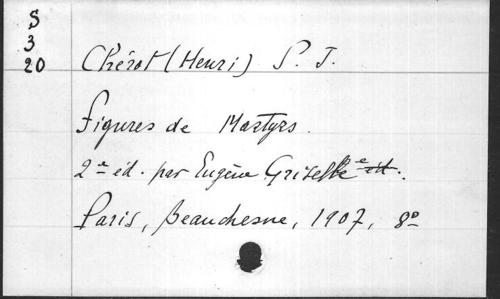 S
3
20
Chérot (Henri) S. J.
Figures de Martyrs.
2e éd. par Eugène Griselle e éd.
Paris, Beauchesne, 1907, 8o